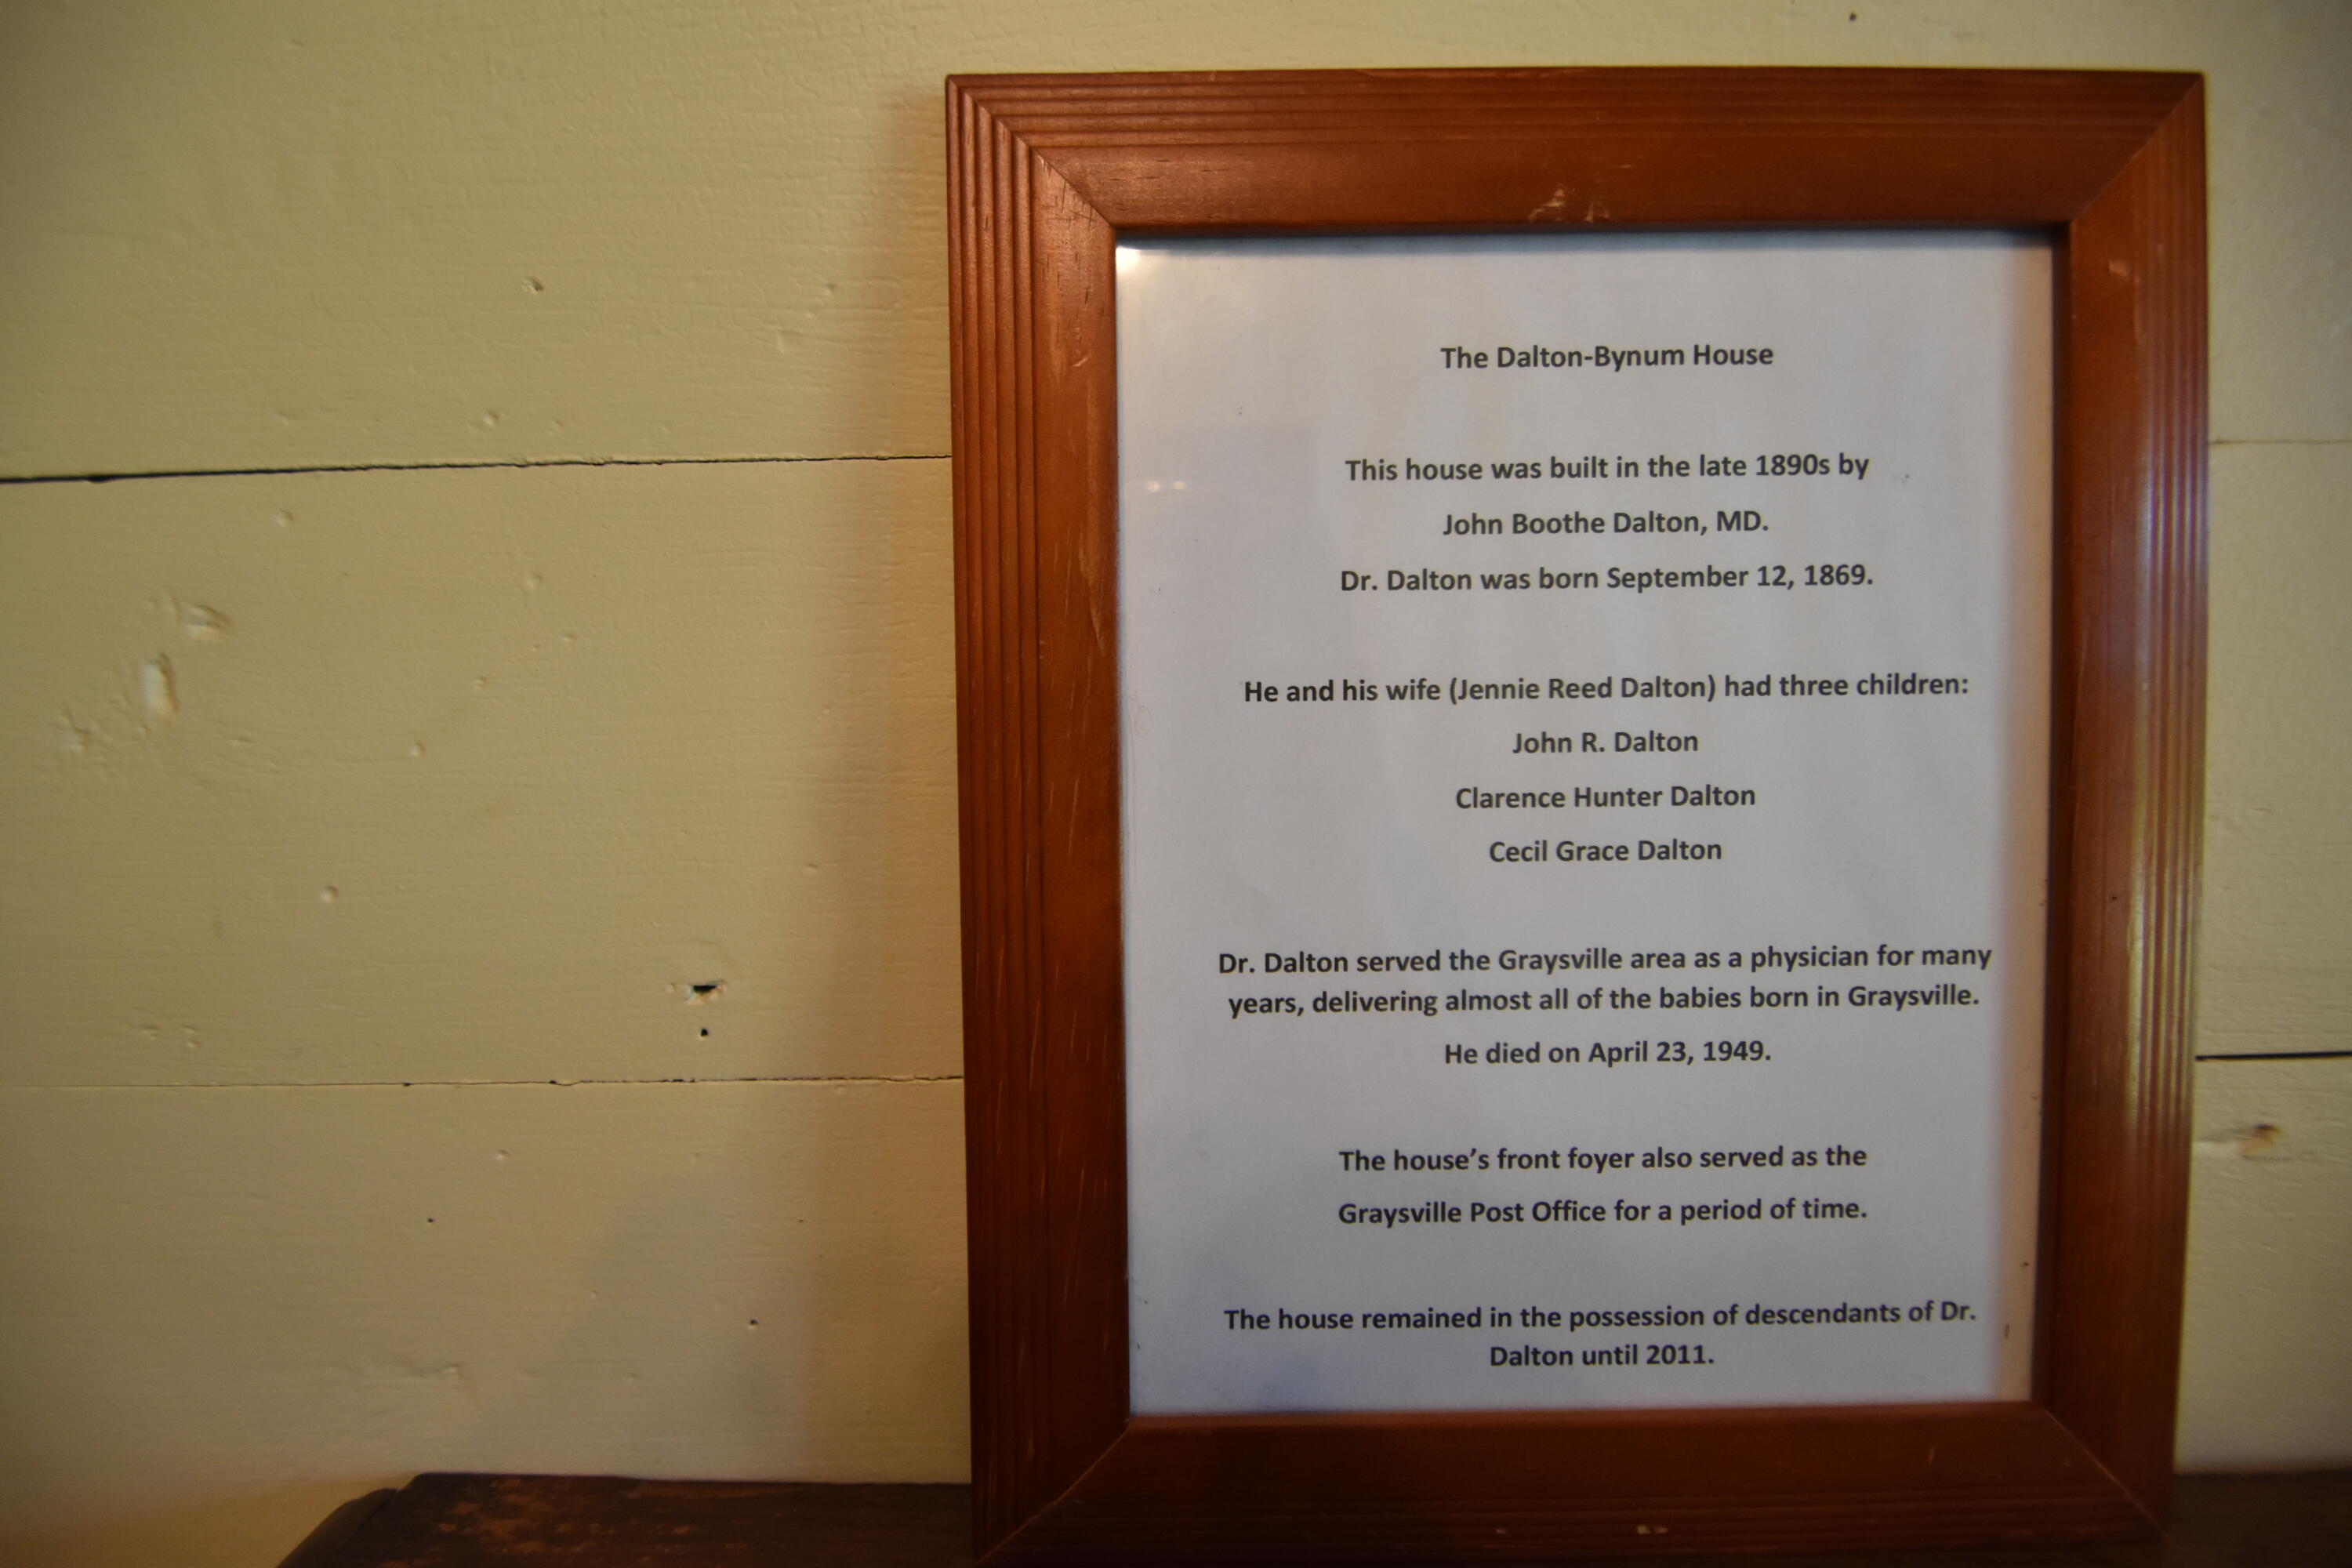 The Dalton-Bynum House
This house was built in the late 1890s by
John Boothe Dalton, MD.
Dr. Dalton was born September 12, 1869.
He and his wife (Jennie Reed Dalton) had three children:
John R. Dalton
Clarence Hunter Dalton
Cecil Grace Dalton
Dr. Dalton served the Graysville area as a physician for many
years, delivering almost all of the babies born in Graysville.
He died on April 23, 1949.
The house’s front foyer also served as the
Graysville Post Office for a period of time.
The house remained in the possession of descendants of Dr.
Dalton until 2011.